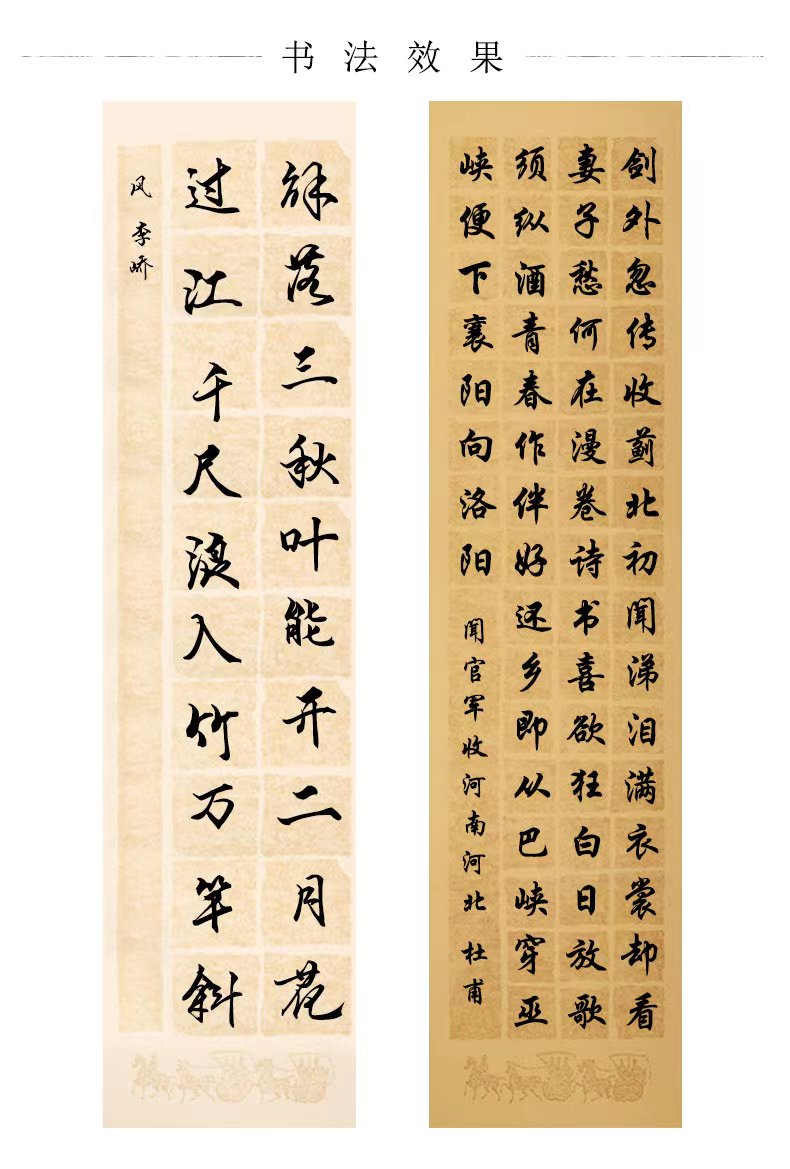 书法效果
解落三秋叶能开二月花
过江千尺浪入竹万竿斜
风 李峤
剑外忽传收蓟北初闻涕泪满衣裳却看
妻子愁何在漫卷诗书喜欲狂白日放歌
须纵酒青春作伴好还乡即从巴峡穿巫
峡便下襄阳向洛阳
闻官军收河南河北 杜甫